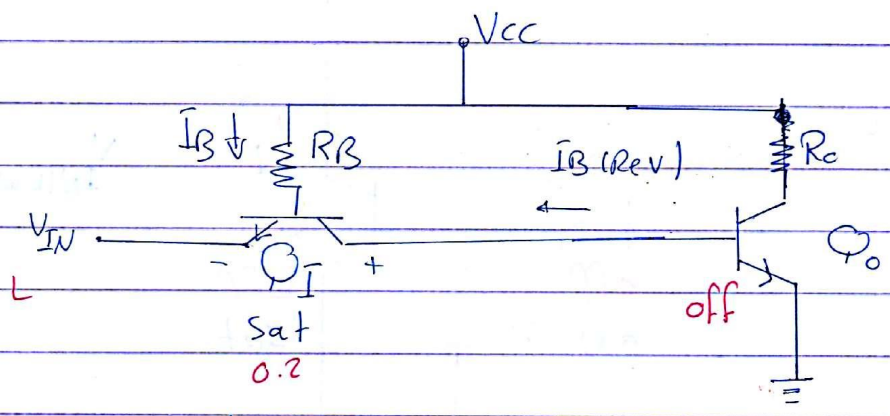 VCC
IB ↓ RB
IB (Rev) Rc
←
VIN
- QI + Qo
L off
Sat
0.2